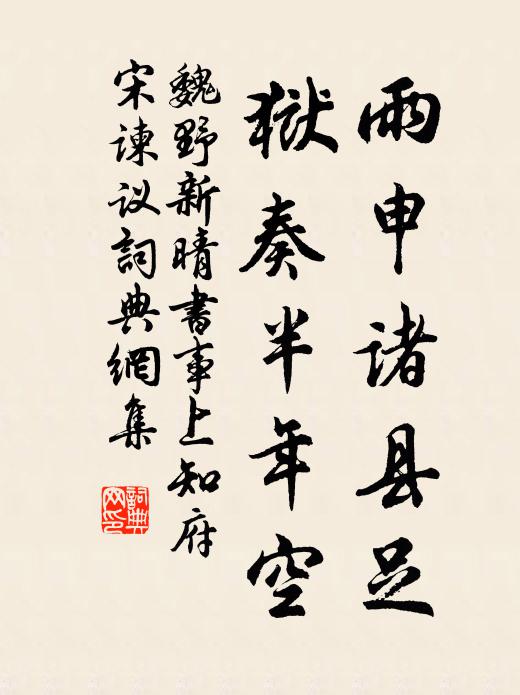 雨申诸县足
狱奏半年空
魏野新晴書事上知府
宋谏议詞典網集
詞典
网印